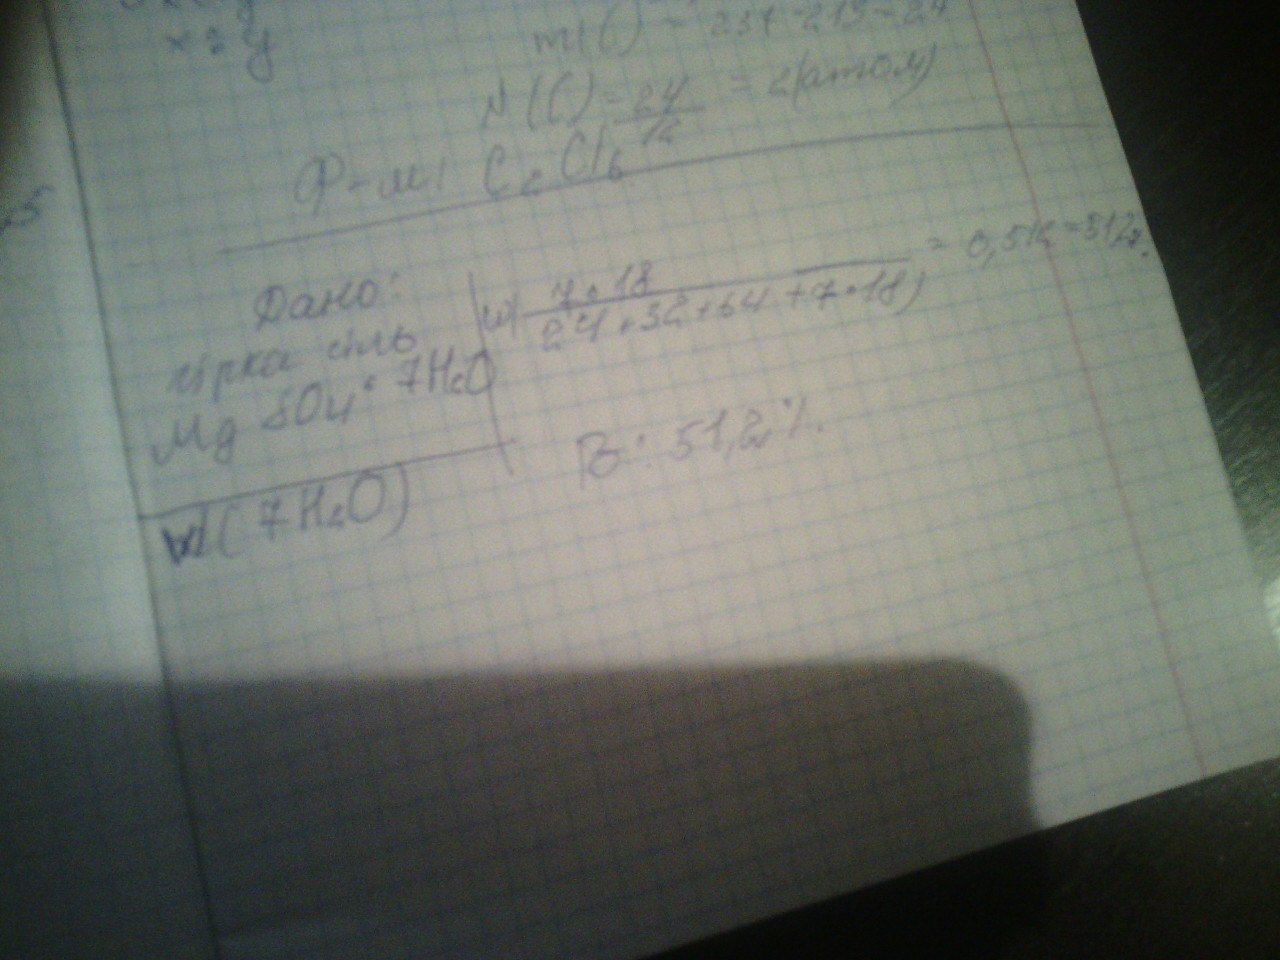 x = y
m(C) = 237 - 213 = 24
N(C) = 24/12 = 2(атом)
Ф-ла C2Cl6
Дано:
гірка сіль
MgSO4 • 7H2O
w(7H2O)
w = 7•18 / (24+32+64+7•18) = 0,512 = 51,2%.
В: 51,2%.